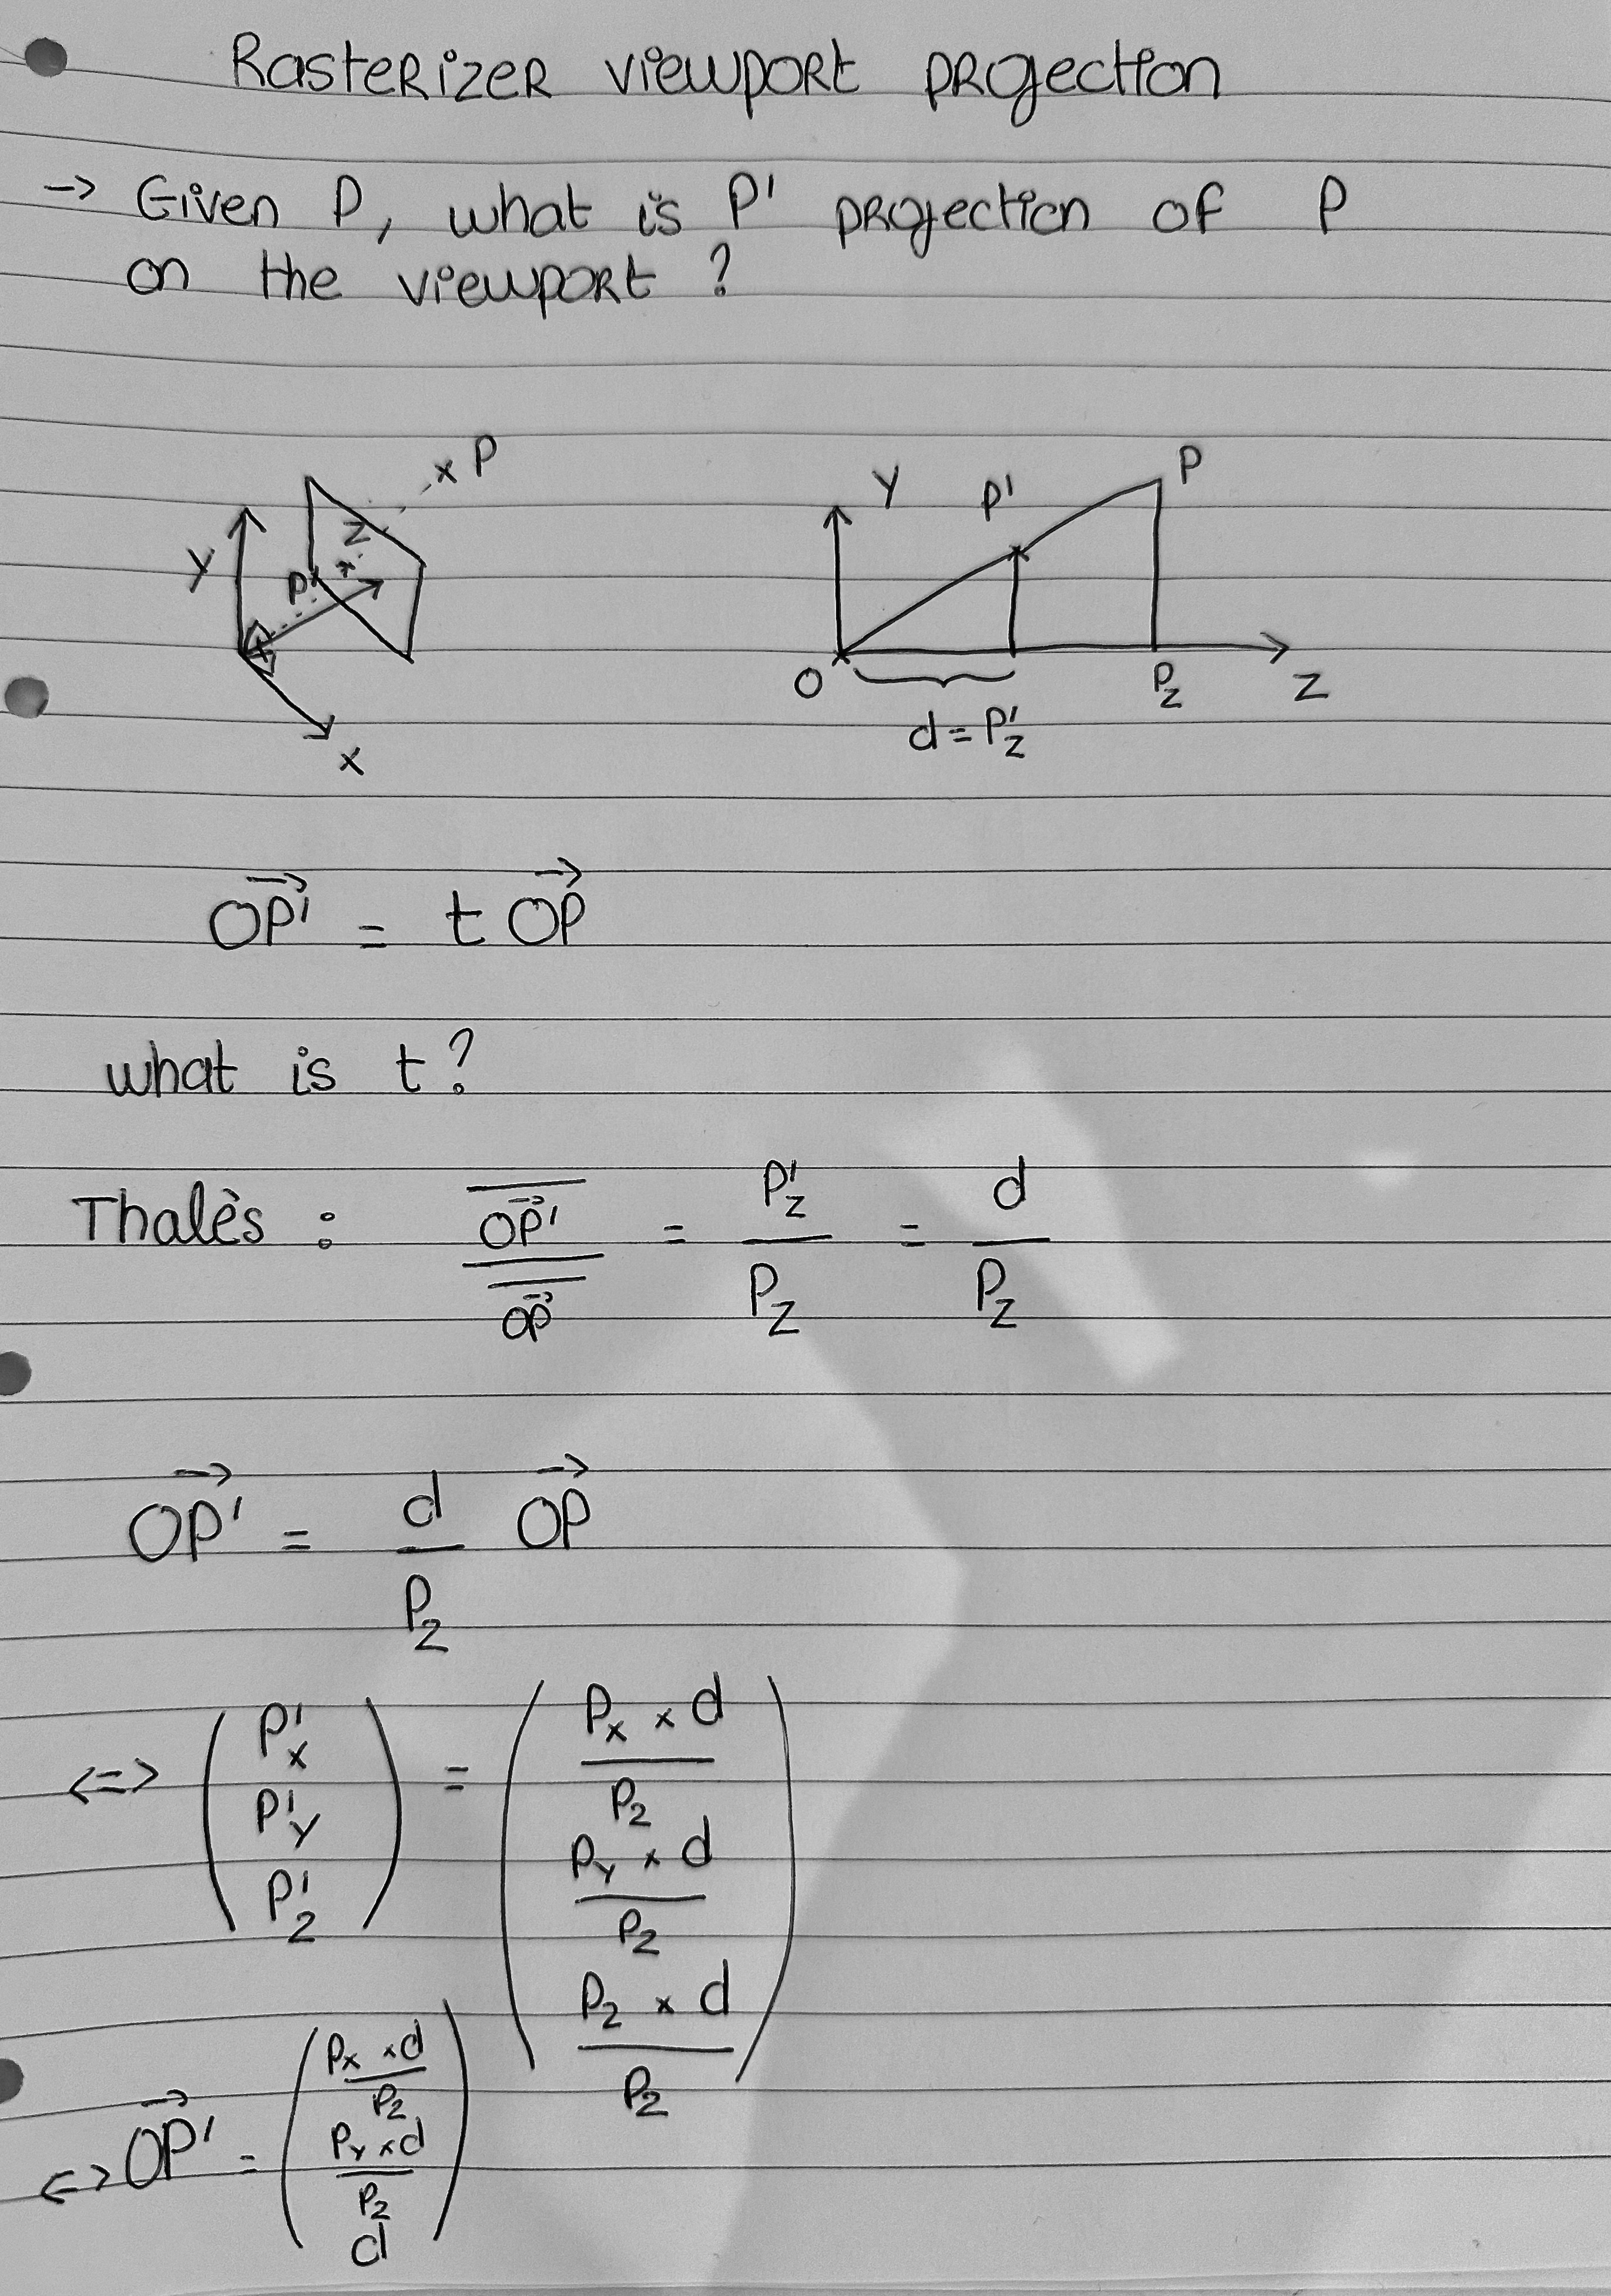 Rasterizer viewport projection
→ Given P, what is P' projection of P
on the viewport ?
x P
Y
Z
P'
x
Y
P'
P
O
P_z
Z
d = P'_z
OP' = t OP
what is t ?
Thalès : OP' / OP = P'_z / P_z = d / P_z
OP' = d / P_z OP
<=> ( P'_x P'_y P'_z ) = ( P_x × d / P_z P_y × d / P_z P_z × d / P_z )
<=> OP' = ( P_x × d / P_z P_y × d / P_z d )